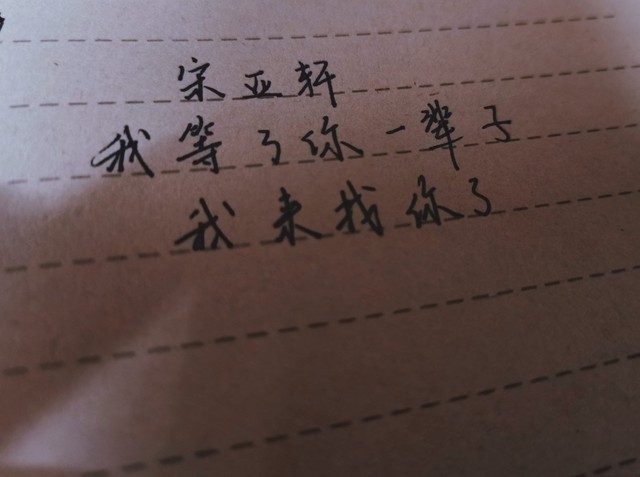 宋亚轩
我等了你一辈子
我来找你了